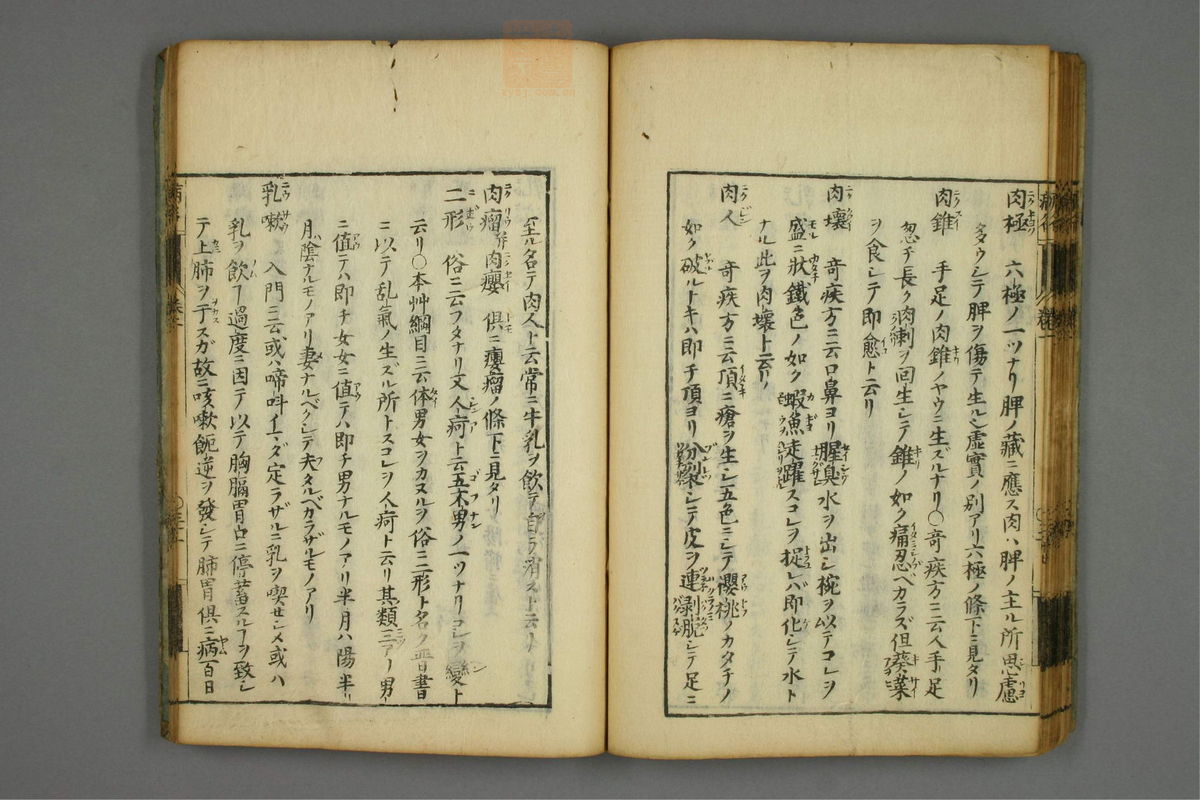 肉極 六極ノ一ツナリ脾ノ藏ニ應ス肉ハ脾ノ主ル所思慮
多ウシテ脾ヲ傷テ生ル虚實ノ別アリ六極ノ條下ニ見タリ
肉錐 手足ノ肉錐ノヤウニ生ズルナリ〇奇疾方ニ云人手足
忽チ長ク肉刺ヲ回生シテ錐ノ如ク痛忍ベカラズ但葵菜
ヲ食シテ即愈ト云リ
肉壊 奇疾方ニ云口鼻ヨリ腥臭水ヲ出シ椀ヲ以テコレヲ
盛ニ狀鐵色ノ如ク蝦魚走躍スコレヲ捉レバ即化シテ水ト
ナル此ヲ肉壊ト云リ
肉人 奇疾方ニ云頂ニ瘡ヲ生シ五色ニシテ櫻桃ノカタチノ
如ク破ルトキハ即チ頂ヨリ分裂シテ皮ヲ連剥脱シテ足ニ
至ル名テ肉人ト云常ニ牛乳ヲ飲テ自ラ消スト云リ
肉瘤 并肉癭 倶ニ癭瘤ノ條下ニ見タリ
二形 俗ニ云フタナリ又人痾ト云五不男ノ一ツナリコレヲ變ト
云リ〇本艸綱目ニ云体男女ヲカヌルヲ俗ニ二形ト名ク晋書
ニ以テ乱氣ノ生ズル所トスコレヲ人痾ト云リ其類三アリ男
ニ値テハ即チ女女ニ値テハ即チ男ナルモノアリ半月ハ陽半
月ハ陰ナルモノアリ妻ナルベクシテ夫タルベカラザルモノアリ
乳嗽 入門ニ云或ハ啼叫イマダ定ラザルニ乳ヲ喫セシメ或ハ
乳ヲ飲フ過度ニ因テ以テ胸膈胃口ニ停蓄スルヿヲ致シ
テ上肺ヲ干スガ故ニ咳嗽呃逆ヲ發シテ肺胃倶ニ病百日